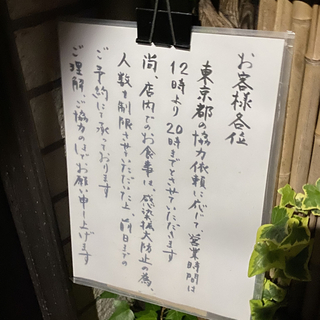 お客様各位
東京都の協力依頼に応じて、営業時間は
12時より20時までとさせていただきます
尚、店内でのお食事は、感染拡大防止の為、
人数を制限させていただいた上、前日までの
ご予約にて承っております
ご理解、ご協力のほどお願い申し上げます